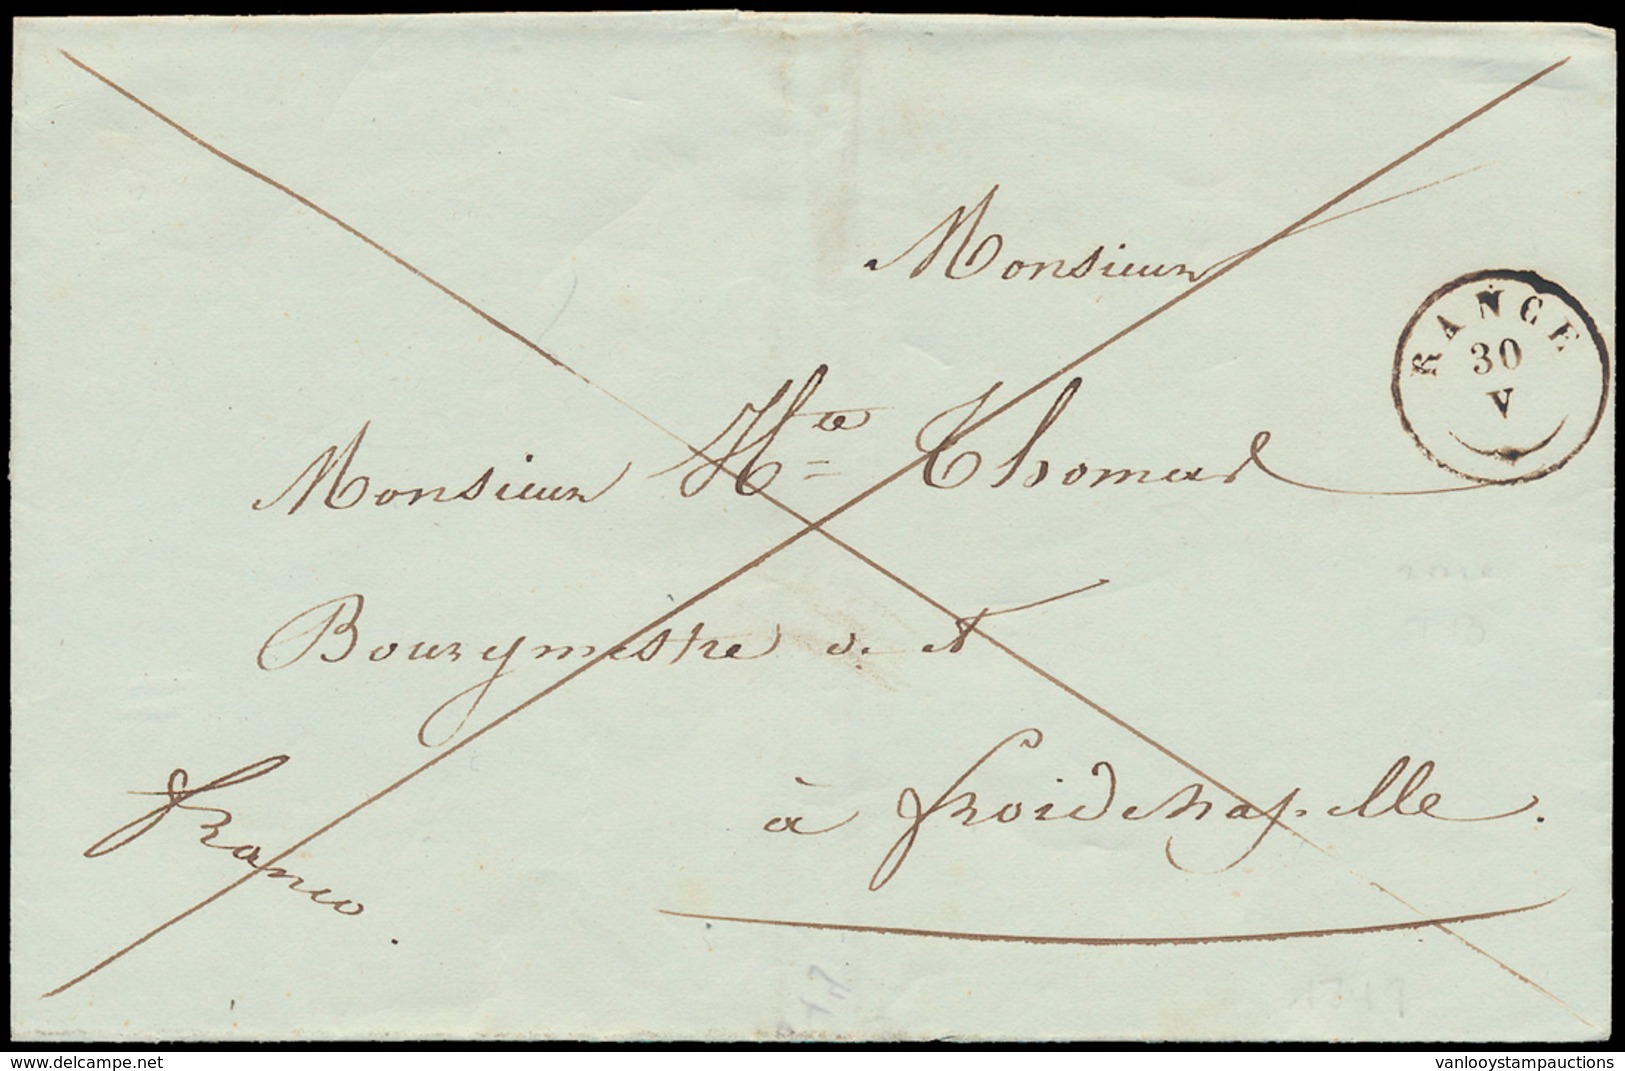 Monsieur
RANCE
30
V
Monsieur Hte Thomas
Bourgmestre &. &
à froidchapelle.
franco.
delcampe.net
vanlooystampauctions